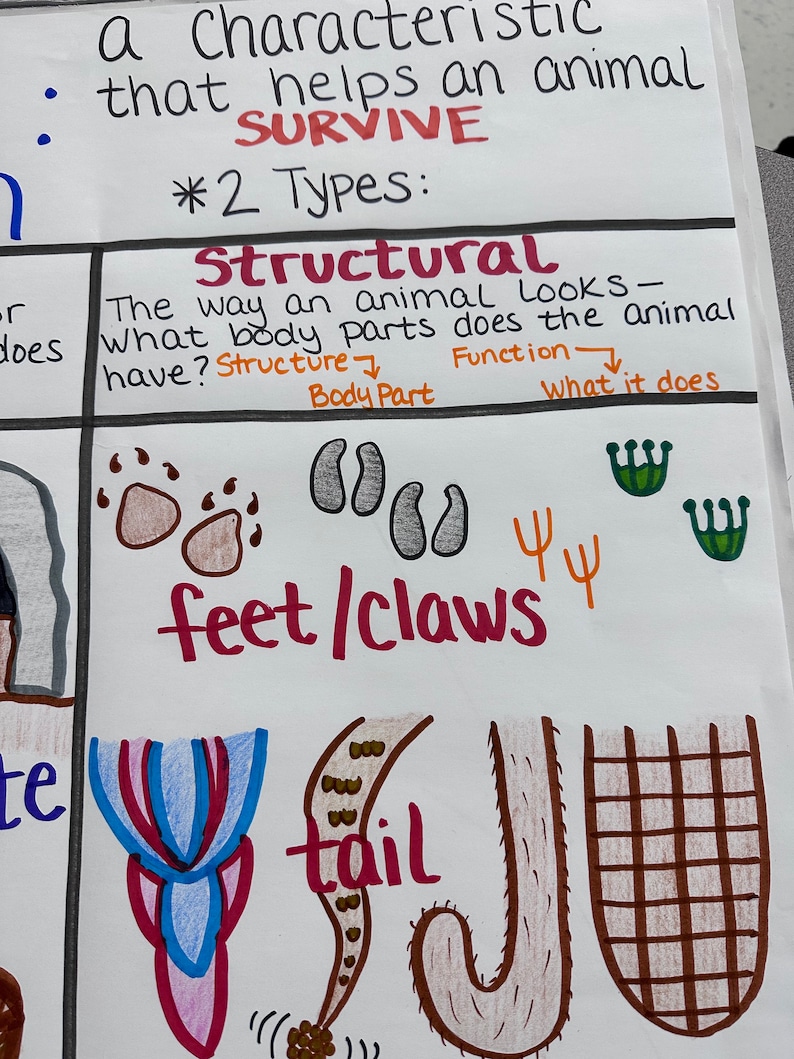 a characteristic
: that helps an animal
SURVIVE
*2 Types:
Structural
The way an animal looks—
does
what body parts does the animal
have? Structure Function
Body Part what it does
feet/claws
tail